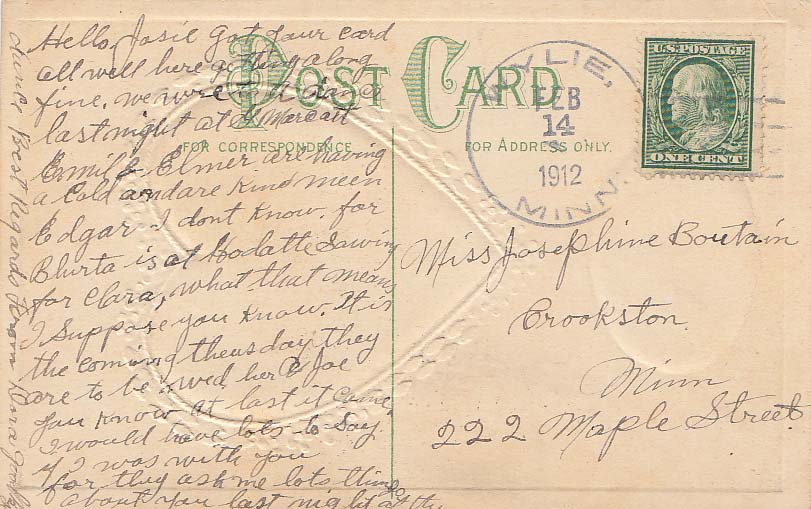 Hello Josie Got your card
all well here getting along
fine. we were
last night at Marcott
& Elmer are having
a Cold and are Kind meen
Edgar I dont Know. for
Bhirta is at Hodatte Sawing
for Clara, what that means
I Suppose you Know. It is
the coming theusday they
are to be her & Joe
you Know at last it Came,
I would have lots to Say
if I was with you
for they ask me lots things
about you last night at the
Best Regards From
POST CARD
FOR CORRESPONDENCE
FOR ADDRESS ONLY.
WYLIE,
FEB
14
1912
MINN.
U.S. POSTAGE
ONE CENT
Miss Josephine Boutain
Crookston.
Minn
222 Maple Street